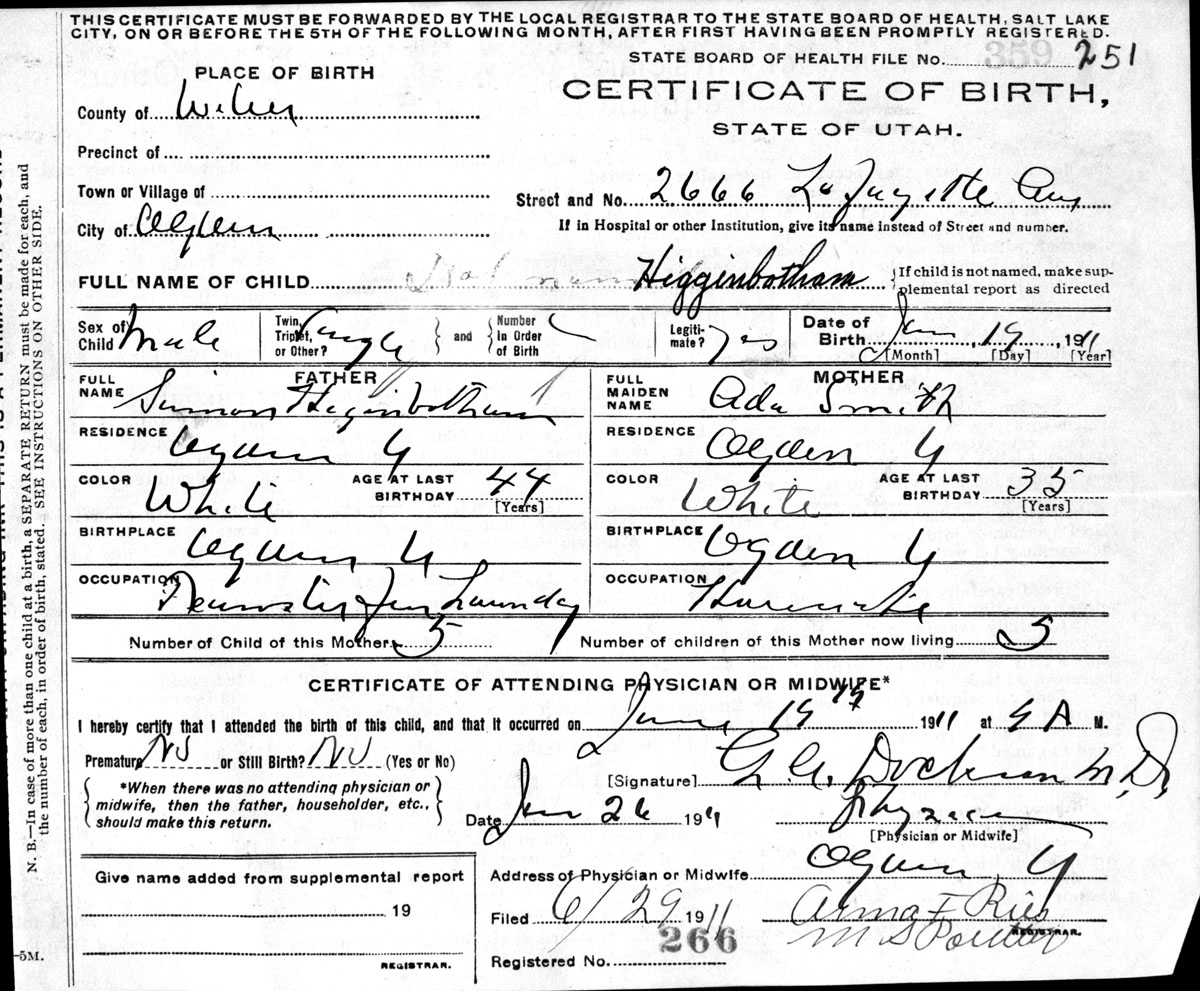 THIS CERTIFICATE MUST BE FORWARDED BY THE LOCAL REGISTRAR TO THE STATE BOARD OF HEALTH, SALT LAKE
CITY, ON OR BEFORE THE 5TH OF THE FOLLOWING MONTH, AFTER FIRST HAVING BEEN PROMPTLY REGISTERED.
STATE BOARD OF HEALTH FILE No. 359 251
PLACE OF BIRTH
CERTIFICATE OF BIRTH,
STATE OF UTAH.
County of Weber
Precinct of
Town or Village of
Street and No. 2666 La Fayette Ave
City of Ogden
If in Hospital or other Institution, give its name instead of Street and number.
FULL NAME OF CHILD Not named Higginbotham { If child is not named, make sup-
plemental report as directed
Sex of Child Male
Twin, Triplet, or Other? Single } and { Number In Order of Birth
Legiti-mate? Yes
Date of Birth June, 19, 1911
[Month] [Day] [Year]
FATHER
FULL NAME Simon Higinbotham
RESIDENCE Ogden U
COLOR White AGE AT LAST BIRTHDAY 44 [Years]
BIRTHPLACE Ogden U
OCCUPATION Laundry
MOTHER
FULL MAIDEN NAME Ada Smith
RESIDENCE Ogden U
COLOR White AGE AT LAST BIRTHDAY 35 [Years]
BIRTHPLACE Ogden U
OCCUPATION Housewife
Number of Child of this Mother 5 Number of children of this Mother now living 5
CERTIFICATE OF ATTENDING PHYSICIAN OR MIDWIFE*
I hereby certify that I attended the birth of this child, and that it occurred on June 19th 1911 at 9 A M.
Premature No or Still Birth? No (Yes or No)
[Signature] M.D.
*When there was no attending physician or
midwife, then the father, householder, etc.,
should make this return.
Date Jun 26 1911
Physician
[Physician or Midwife]
Address of Physician or Midwife Ogden, U
Give name added from supplemental report
19
REGISTRAR.
Filed 6/29 1911
266
Registered No.
REGISTRAR.
N. B.—In case of more than one child at a birth, a SEPARATE RETURN must be made for each, and
the number of each, in order of birth, stated. SEE INSTRUCTIONS ON OTHER SIDE.
-5M.